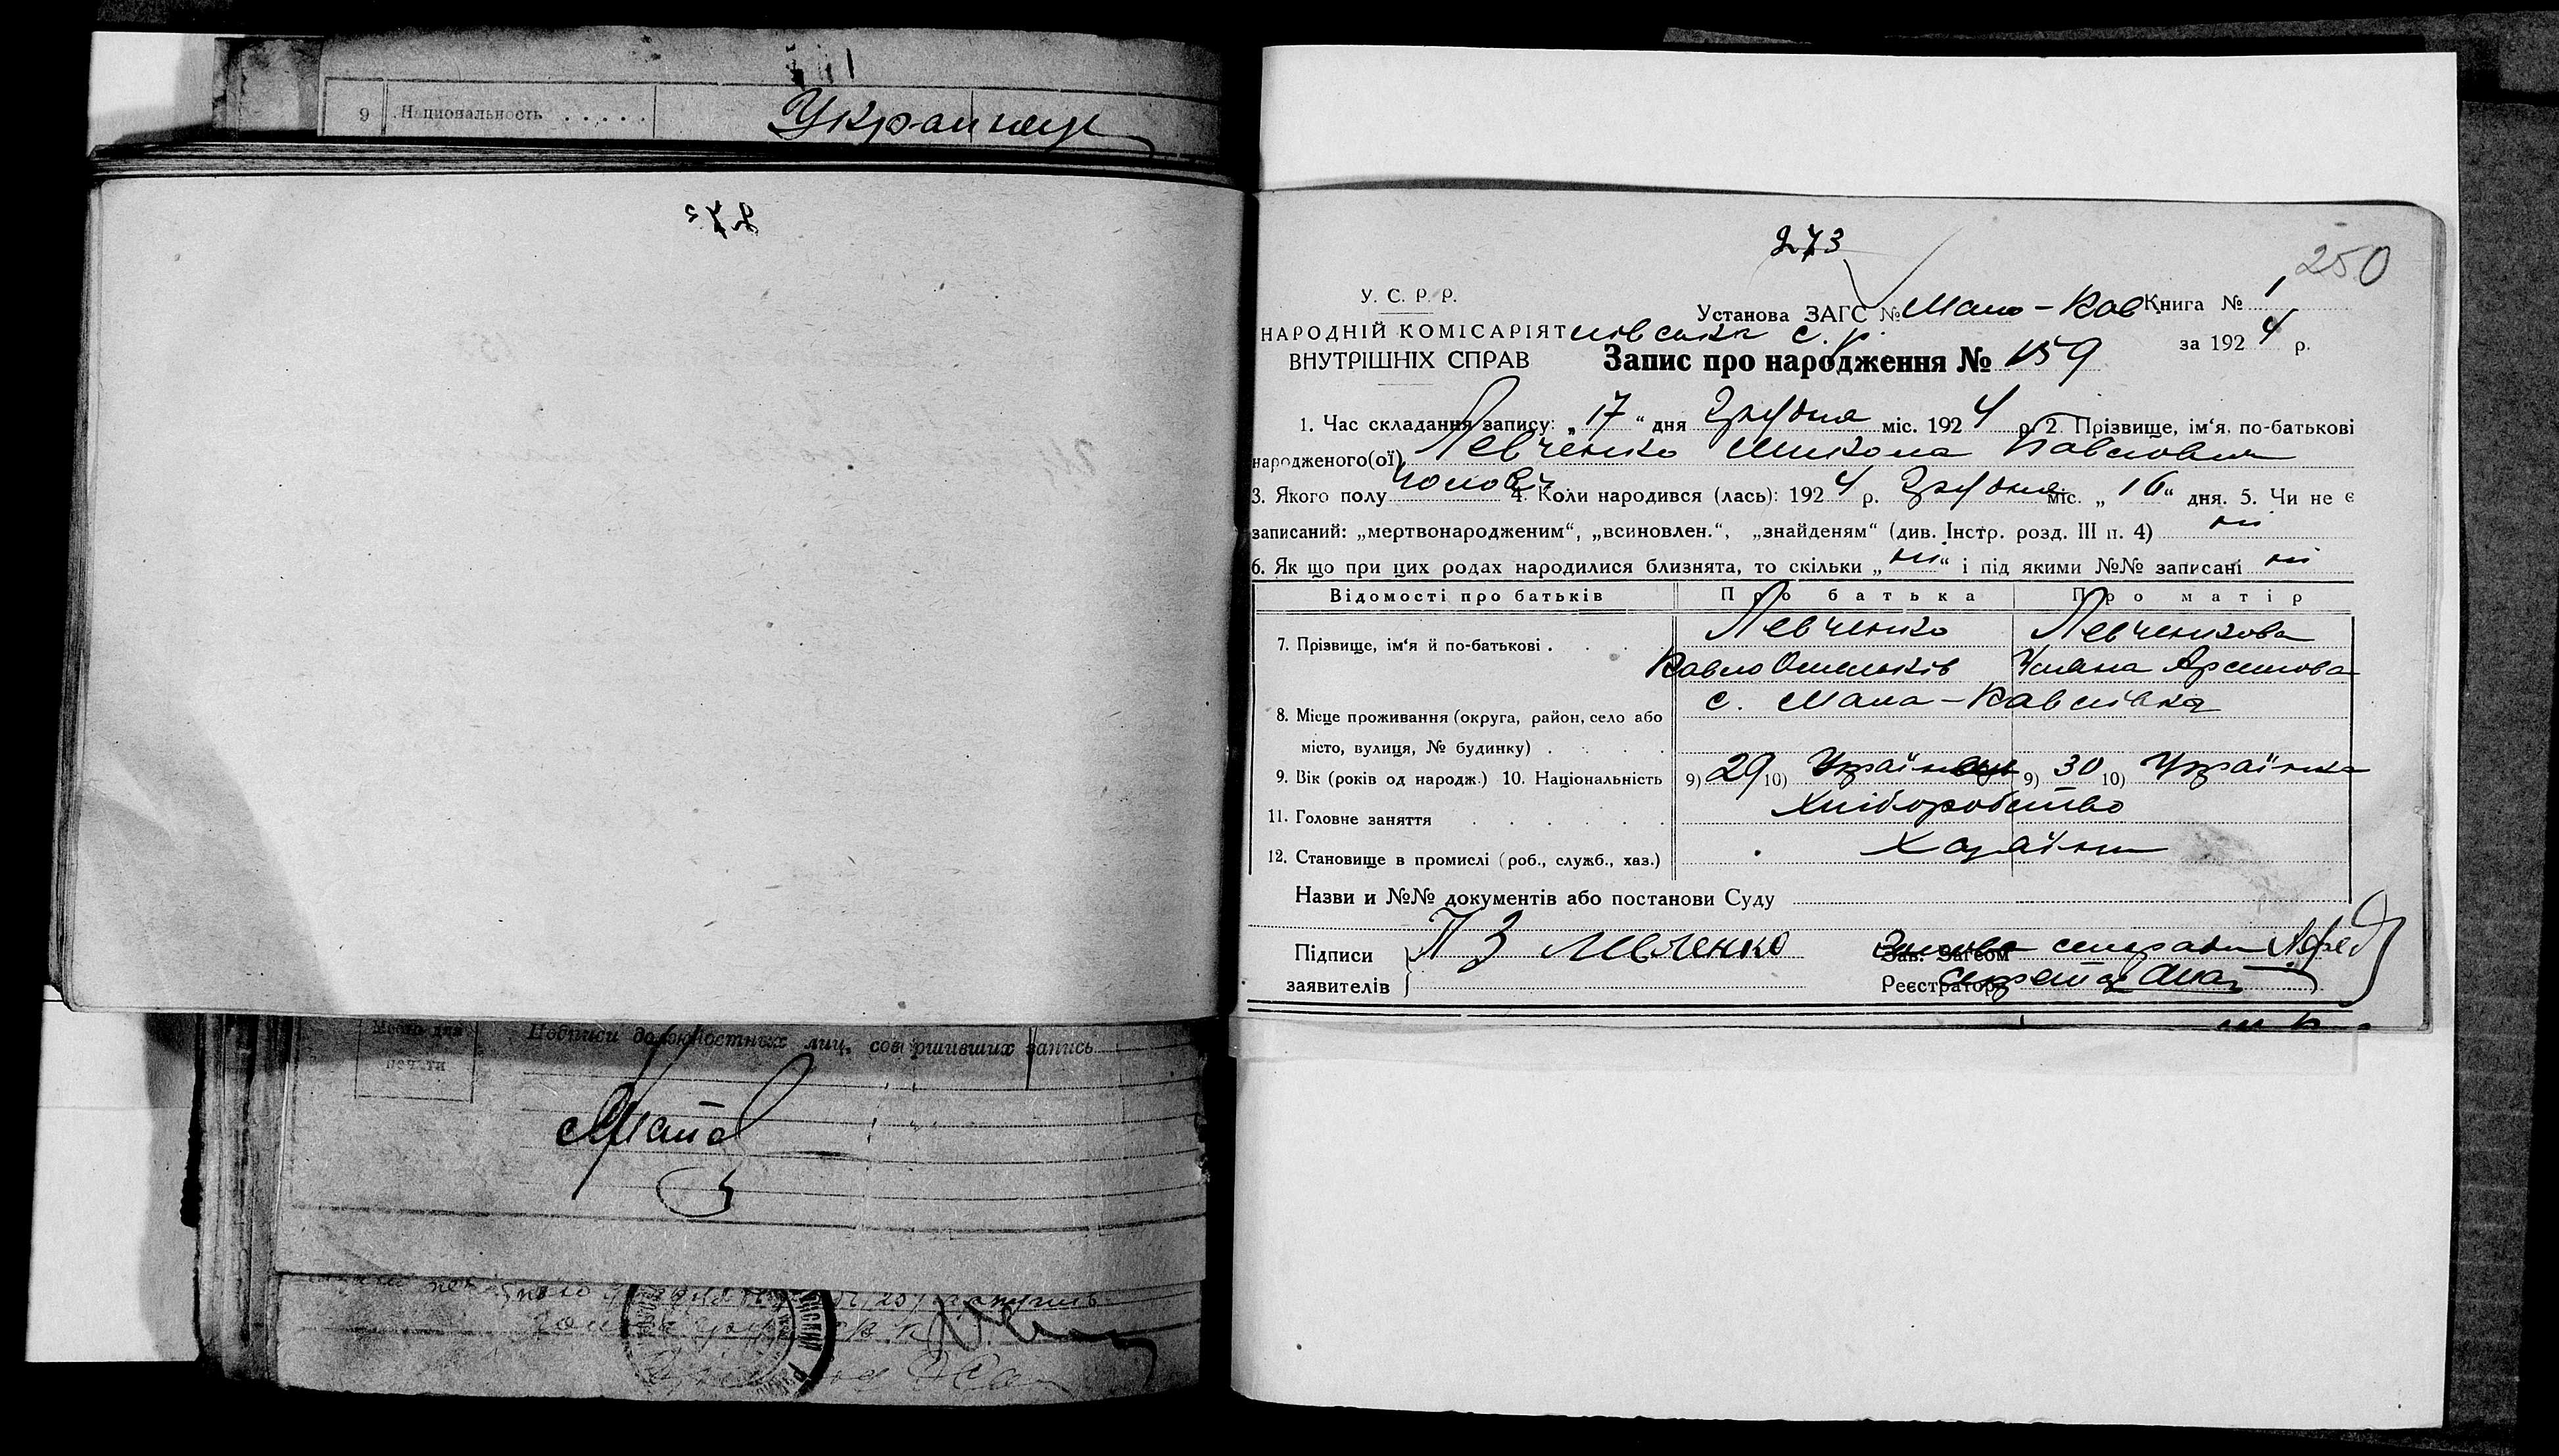 9 Национальность . . . . . Украинец
273
250
У. С. Р. Р.
Установа ЗАГС № Мало-Кав Книга № 1
НАРОДНІЙ КОМІСАРІЯТ лівська с. р.
за 1924 р.
ВНУТРІШНІХ СПРАВ Запис про народження № 159
1. Час складання запису: „17“ дня Грудня міс. 1924 р. 2. Прізвище, ім‘я, по-батькові
народженого(ої) Левченко Микола Павлович
3. Якого полу чолов 4. Коли народився (лась): 1924 р. Грудня міс. „16“ дня. 5. Чи не є
записаний: „мертвонародженим“, „всиновлен.“, „знайденям“ (див. Інстр. розд. III п. 4) ні
6. Як що при цих родах народилися близнята, то скільки „ні“ і під якими №№ записані ні
Відомості про батьків Про батька Про матір
Левченко Левченкова
7. Прізвище, ім‘я й по-батькові .
Павло Омельків Уляна
с. Мала-Кавлівка
8. Місце проживання (округа, район, село або
місто, вулиця, № будинку) .
9. Вік (років од народж.) 10. Національність 9) 29 10) Українець 9) 30 10) Українка
11. Головне заняття Хліборобство
12. Становище в промислі (роб., служб., хаз.) Хазяїни
Назви и №№ документів або постанови Суду
Підписи П З Левченко Зав. Загсом
заявителів Реєстратор
Место для печати
Подписи должностных лиц, совершивших запись